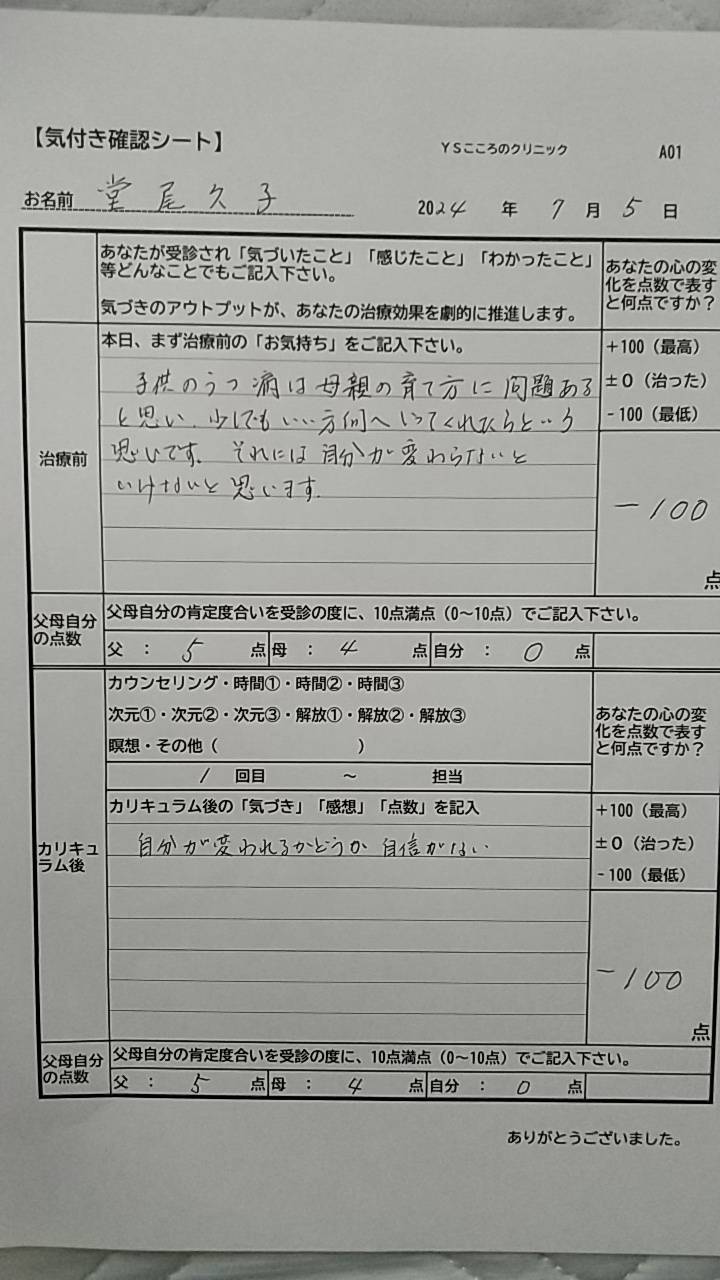 【気付き確認シート】 YSこころのクリニック A01
お名前 堂尾久子 2024 年 7 月 5 日
あなたが受診され「気づいたこと」「感じたこと」「わかったこと」
等どんなことでもご記入下さい。
気づきのアウトプットが、あなたの治療効果を劇的に推進します。
あなたの心の変
化を点数で表す
と何点ですか？
治療前
本日、まず治療前の「お気持ち」をご記入下さい。
子供のうつ病は母親の育て方に問題ある
と思い、少しでもいい方向へいってくれたらという
思いです。それには自分が変わらないと
いけないと思います。
+100（最高）
±0（治った）
-100（最低）
-100
点
父母自分
の点数
父母自分の肯定度合いを受診の度に、10点満点（0～10点）でご記入下さい。
父 ： 5 点 母 ： 4 点 自分 ： 0 点
カリキュ
ラム後
カウンセリング・時間①・時間②・時間③
次元①・次元②・次元③・解放①・解放②・解放③
瞑想・その他（ ）
1 回目 ～ 担当
あなたの心の変
化を点数で表す
と何点ですか？
カリキュラム後の「気づき」「感想」「点数」を記入
自分が変われるかどうか 自信がない
+100（最高）
±0（治った）
-100（最低）
-100
点
父母自分
の点数
父母自分の肯定度合いを受診の度に、10点満点（0～10点）でご記入下さい。
父 ： 5 点 母 ： 4 点 自分 ： 0 点
ありがとうございました。